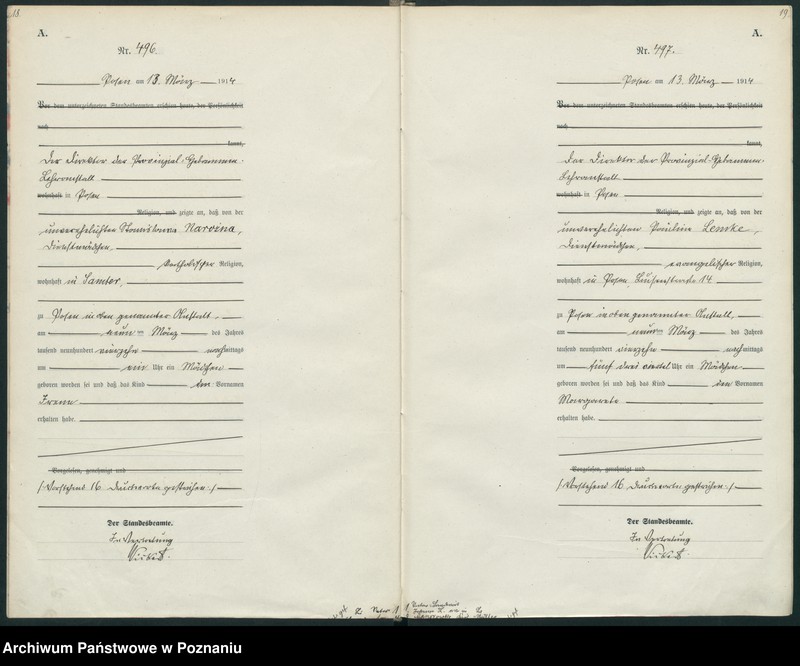 18.
A.
Nr. 496.
Posen am 13. März 1914
Vor dem unterzeichneten Standesbeamten erschien heute, der Persönlichkeit
nach
kannt,
Der Direktor der Provinzial-Hebammen-
Lehranstalt
wohnhaft in Posen
Religion, und zeigte an, daß von der
unverehelichten Stanislawa
Dienstmädchen,
katholischer Religion,
wohnhaft in Samter,
zu Posen in oben genannter Anstalt,
am neunten März des Jahres
tausend neunhundert vierzehn nachmittags
um ein Uhr ein Mädchen
geboren worden sei und daß das Kind den Vornamen
Irene
erhalten habe.
Vorgelesen, genehmigt und
(Vorstehend 16 Druckworte gestrichen.)
Der Standesbeamte.
In Vertretung
19.
A.
Nr. 497.
Posen am 13. März 1914
Vor dem unterzeichneten Standesbeamten erschien heute, der Persönlichkeit
nach
kannt,
Der Direktor der Provinzial-Hebammen-
Lehranstalt
wohnhaft in Posen
Religion, und zeigte an, daß von der
unverehelichten Pauline Lemke,
Dienstmädchen,
evangelischer Religion,
wohnhaft in Posen Luisenstraße 14
zu Posen in oben genannter Anstalt,
am neunten März des Jahres
tausend neunhundert vierzehn nachmittags
um fünf drei viertel Uhr ein Mädchen
geboren worden sei und daß das Kind den Vornamen
Margarete
erhalten habe.
Vorgelesen, genehmigt und
(Vorstehend 16 Druckworte gestrichen.)
Der Standesbeamte.
In Vertretung
Archiwum Państwowe w Poznaniu